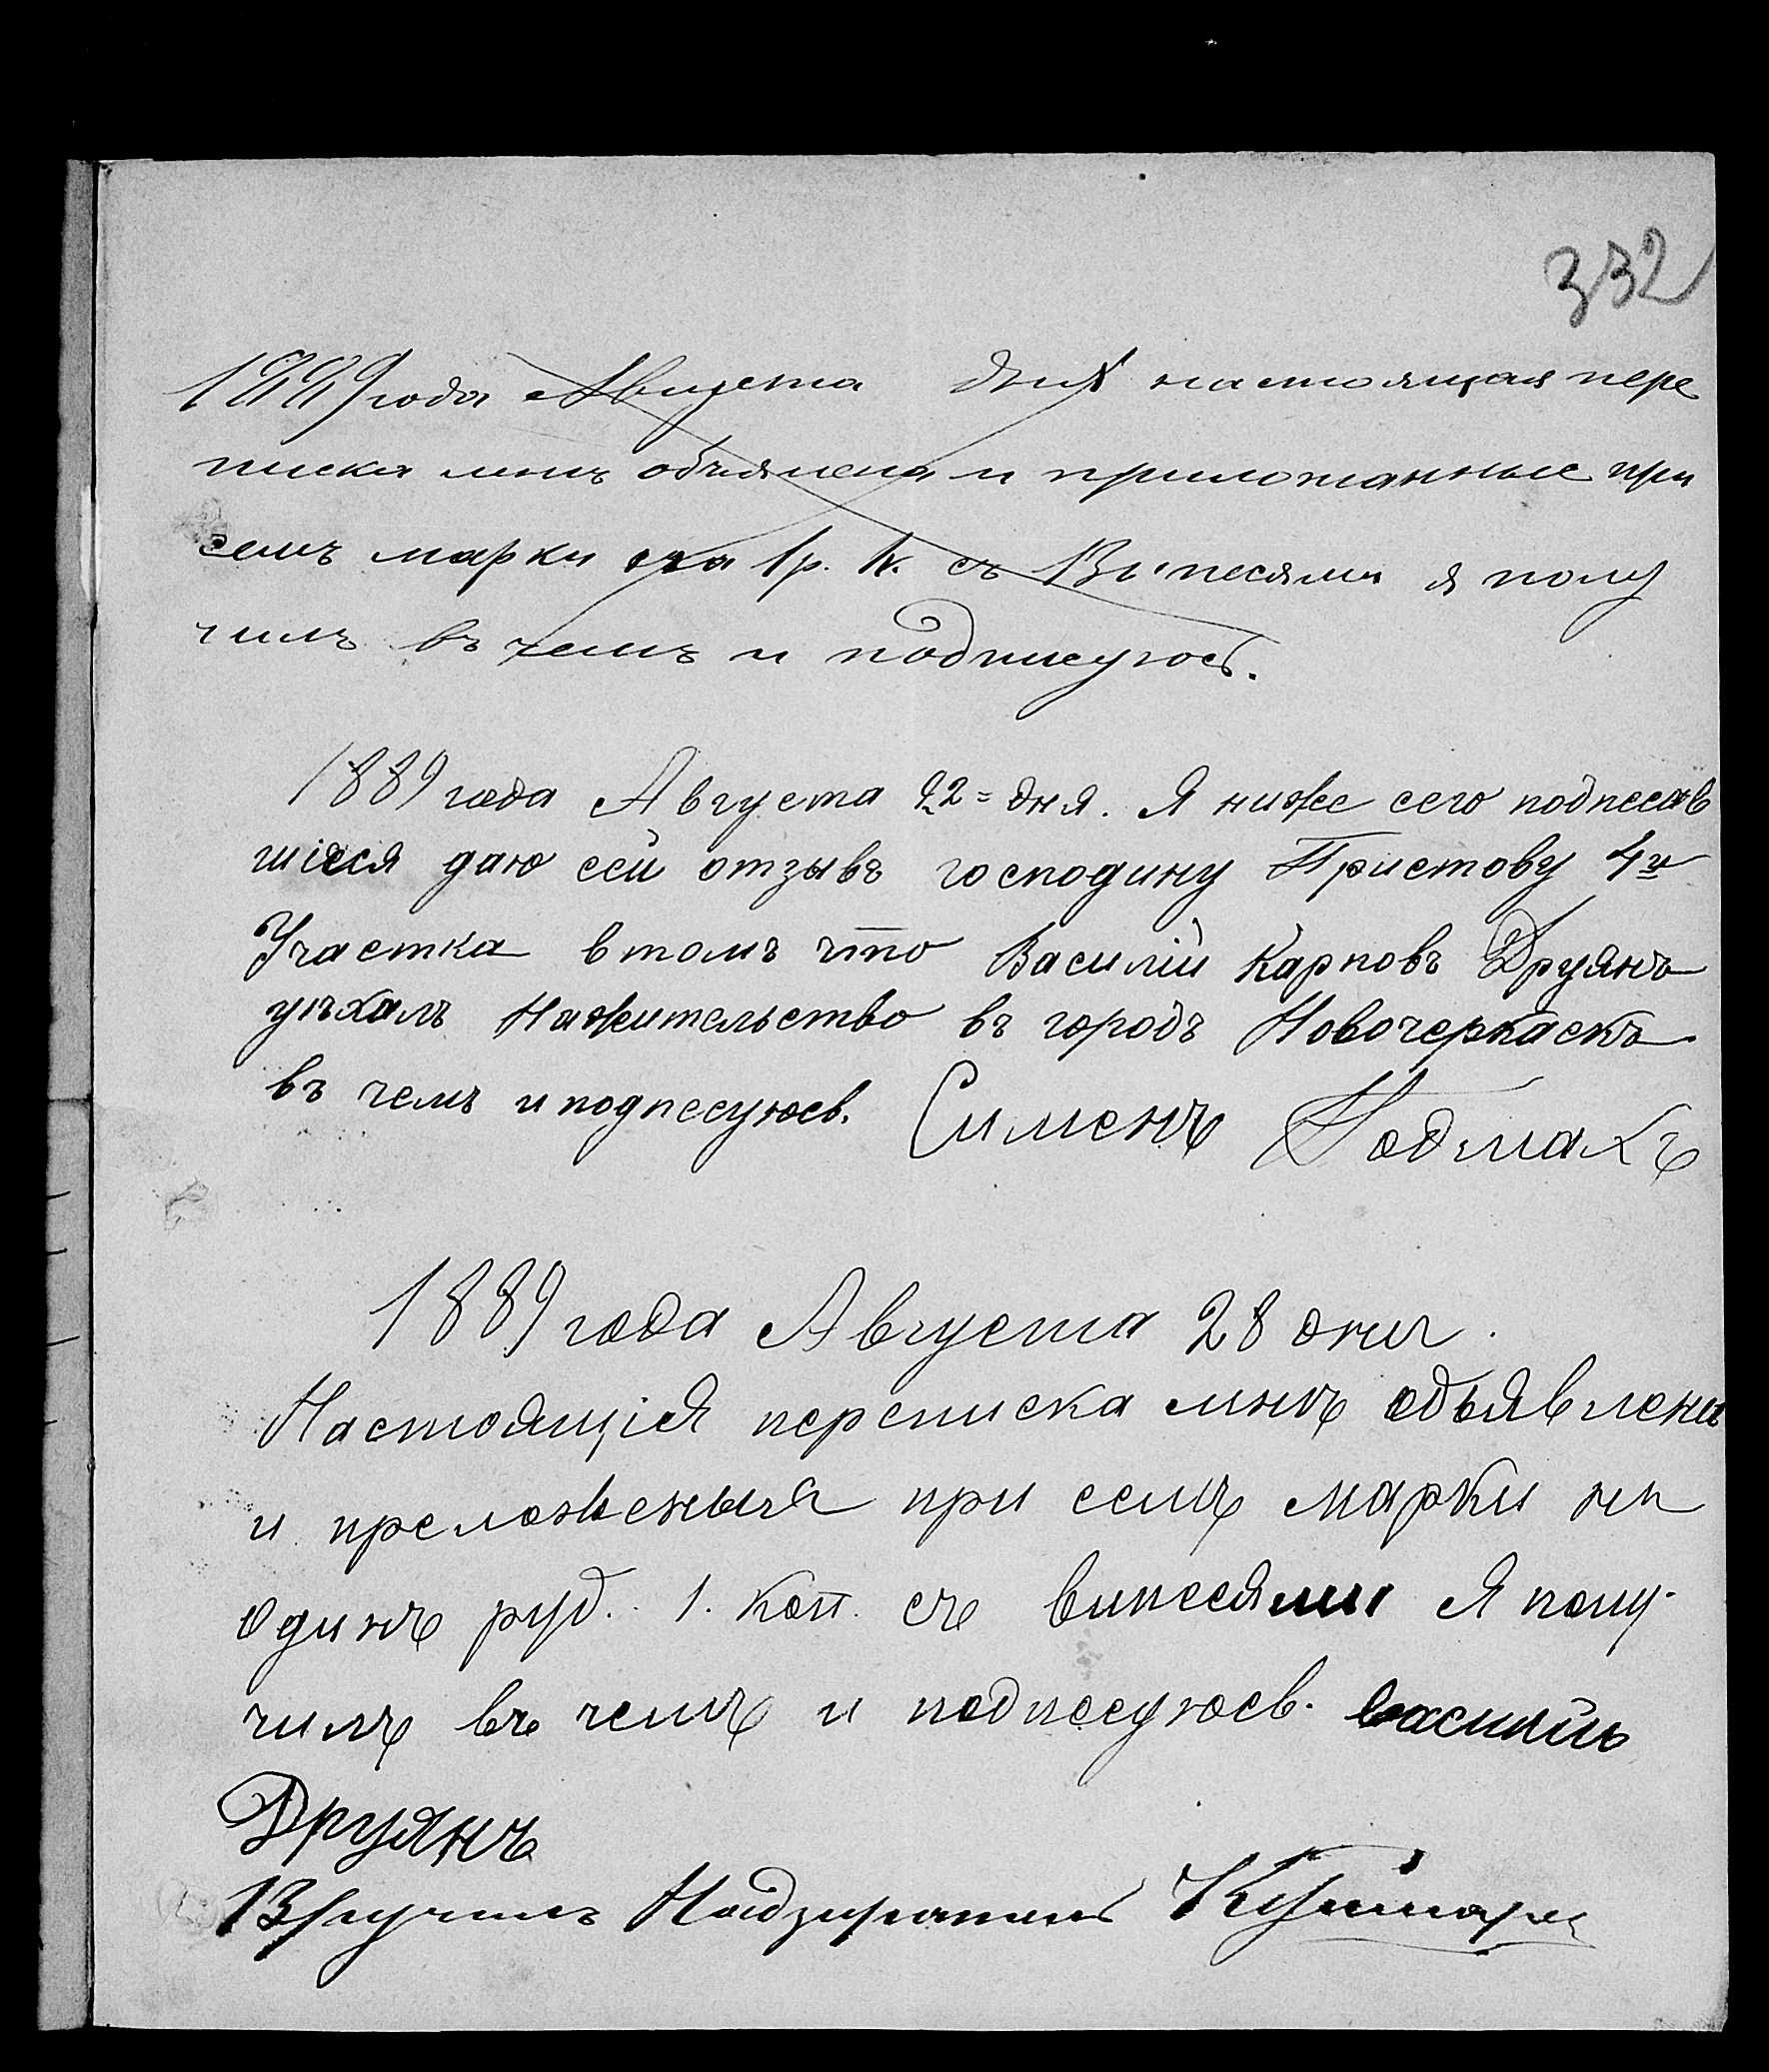 332
1889 года Августа дня настоящая пере
писка мнѣ объявлена и приложанные при
семъ марки на 1р. 1к. съ Выписями я полу
чилъ въ чемъ и подписуюсь.
1889 года Августа 22= дня. Я ниже сего подпесав
шіеся даю сей отзывъ господину Пристову 4у
Участка втомъ что Василій Карповъ Друянъ
уѣхалъ Нажительство въ городъ Новочеркаскъ
въ чемъ и подпесуюсь. Сименъ
1889 года Августа 28 дня.
Настоящія переписка мнѣ объявлена
и преложеныя при семъ марки на
Одинъ руб. 1. коп. съ випесями Я полу-
чилъ въ чемъ и подпесуюсь. Василій
Друянъ
Вручилъ Надзиратель